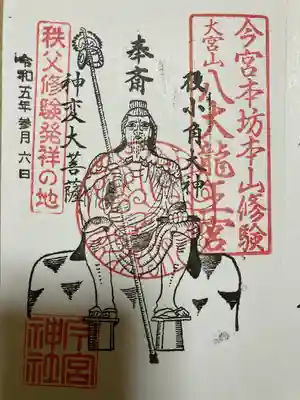 今宮本坊本山修験
大宮山
八大龍王宮
役小角大神
奉斎
神変大菩薩
秩父修験發祥の地
令和五年参月六日
今宮神社